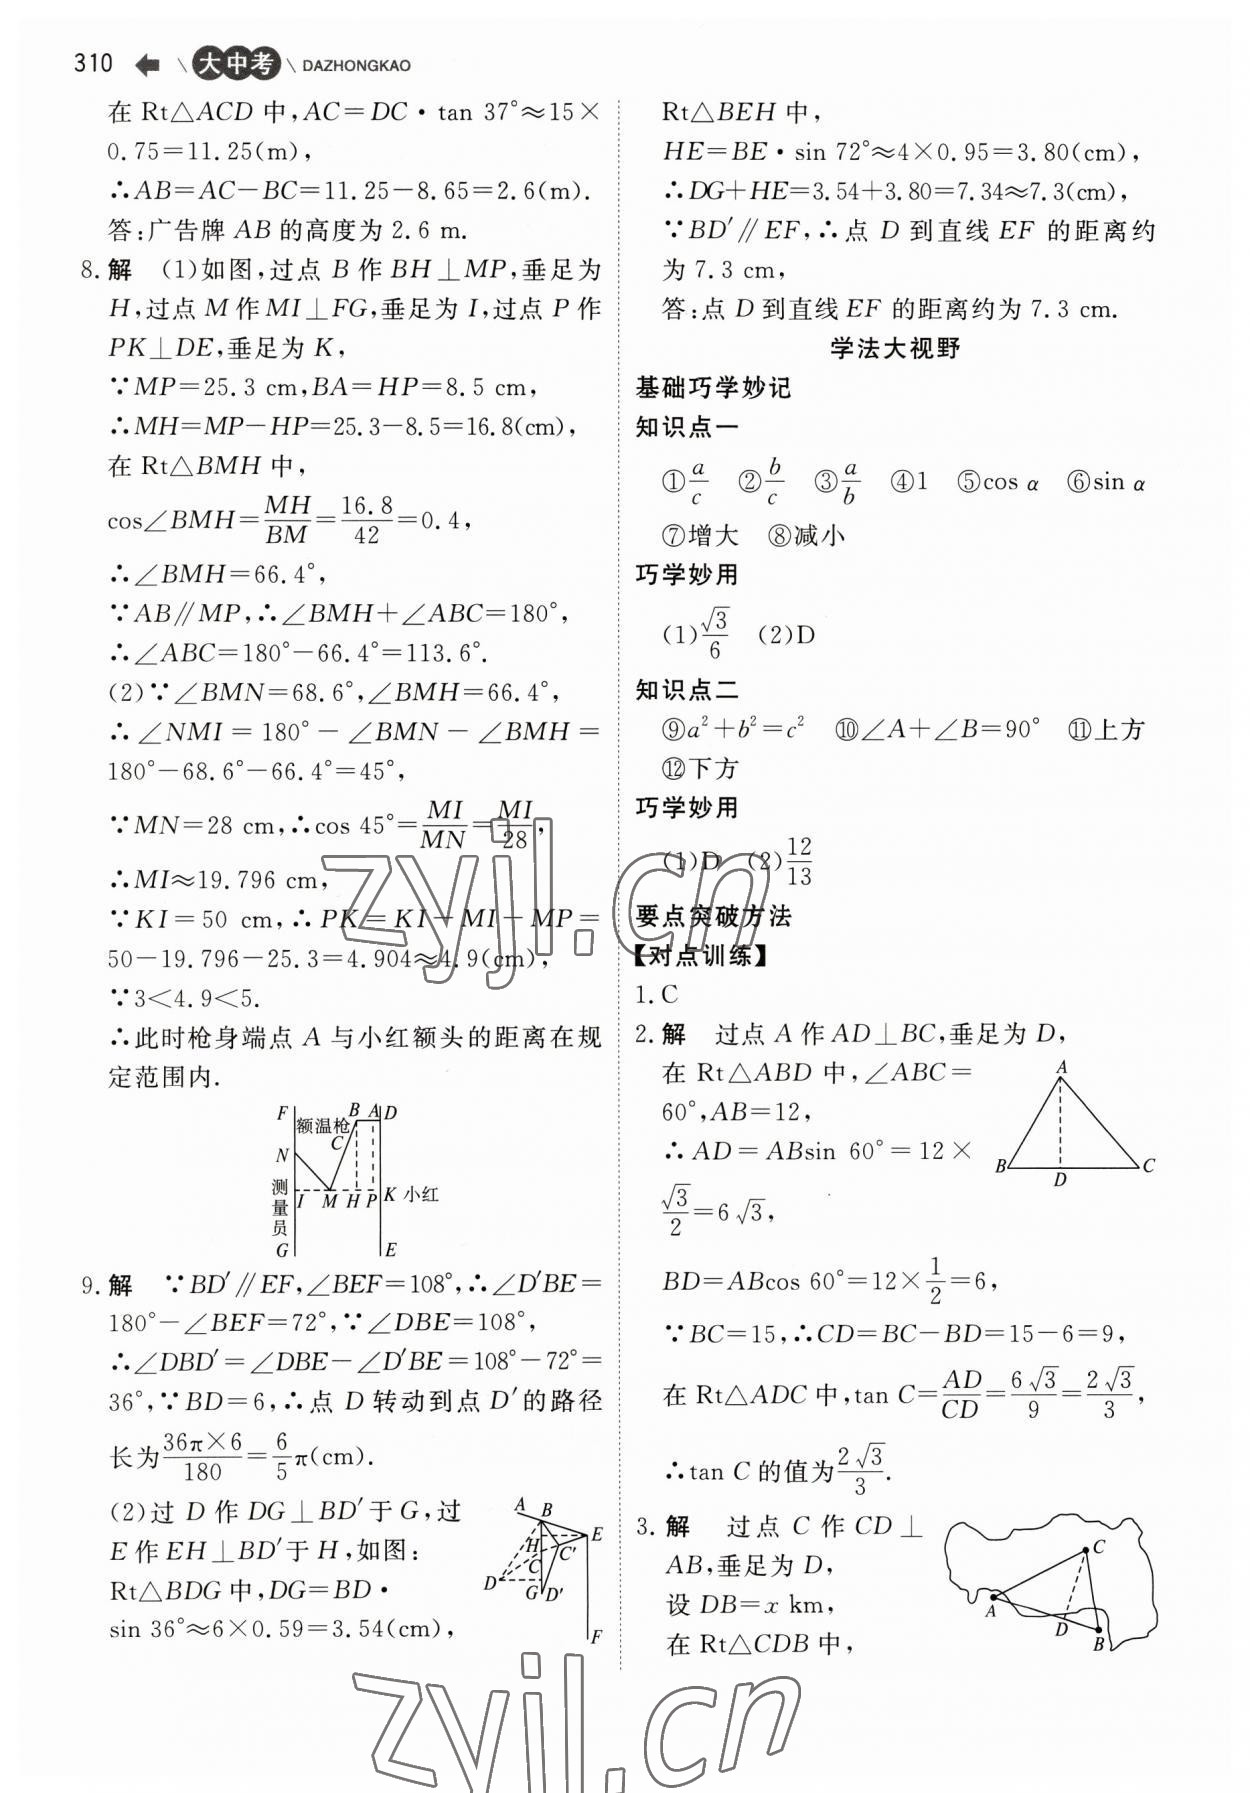 310 大中考 DAZHONGKAO
在 Rt△ACD 中,AC=DC·tan 37°≈15×
0.75=11.25(m),
∴AB=AC−BC=11.25−8.65=2.6(m).
答:广告牌 AB 的高度为 2.6 m.
8.解 (1)如图,过点 B 作 BH⊥MP,垂足为
H,过点 M 作 MI⊥FG,垂足为 I,过点 P 作
PK⊥DE,垂足为 K,
∵MP=25.3 cm,BA=HP=8.5 cm,
∴MH=MP−HP=25.3−8.5=16.8(cm),
在 Rt△BMH 中,
cos∠BMH=MH/BM=16.8/42=0.4,
∴∠BMH=66.4°,
∵AB∥MP,∴∠BMH+∠ABC=180°,
∴∠ABC=180°−66.4°=113.6°.
(2)∵∠BMN=68.6°,∠BMH=66.4°,
∴∠NMI=180°−∠BMN−∠BMH=
180°−68.6°−66.4°=45°,
∵MN=28 cm,∴cos 45°=MI/MN=MI/28,
∴MI≈19.796 cm,
∵KI=50 cm,∴PK=KI−MI−MP=
50−19.796−25.3=4.904≈4.9(cm),
∵3<4.9<5.
∴此时枪身端点 A 与小红额头的距离在规
定范围内.
F B A D
额温枪
C
N
测量员
I M H P K 小红
G E
9.解 ∵BD′∥EF,∠BEF=108°,∴∠D′BE=
180°−∠BEF=72°,∵∠DBE=108°,
∴∠DBD′=∠DBE−∠D′BE=108°−72°=
36°,∵BD=6,∴点 D 转动到点 D′的路径
长为36π×6/180=6/5π(cm).
(2)过 D 作 DG⊥BD′于 G,过
E 作 EH⊥BD′于 H,如图:
Rt△BDG 中,DG=BD·
sin 36°≈6×0.59=3.54(cm),
A B
E
H
C′
C
D
G D′
F
Rt△BEH 中,
HE=BE·sin 72°≈4×0.95=3.80(cm),
∴DG+HE=3.54+3.80=7.34≈7.3(cm),
∵BD′∥EF,∴点 D 到直线 EF 的距离约
为 7.3 cm,
答:点 D 到直线 EF 的距离约为 7.3 cm.
学法大视野
基础巧学妙记
知识点一
①a/c ②b/c ③a/b ④1 ⑤cos α ⑥sin α
⑦增大 ⑧减小
巧学妙用
(1)√3/6 (2)D
知识点二
⑨a²+b²=c² ⑩∠A+∠B=90° ⑪上方
⑫下方
巧学妙用
(1)D (2)12/13
要点突破方法
【对点训练】
1.C
2.解 过点 A 作 AD⊥BC,垂足为 D,
在 Rt△ABD 中,∠ABC=
60°,AB=12,
∴AD=ABsin 60°=12×
√3/2=6√3,
A
B D C
BD=ABcos 60°=12×1/2=6,
∵BC=15,∴CD=BC−BD=15−6=9,
在 Rt△ADC 中,tan C=AD/CD=6√3/9=2√3/3,
∴tan C 的值为2√3/3.
3.解 过点 C 作 CD⊥
AB,垂足为 D,
设 DB=x km,
在 Rt△CDB 中,
C
A
D
B
zyjl.cn
zyjl.cn